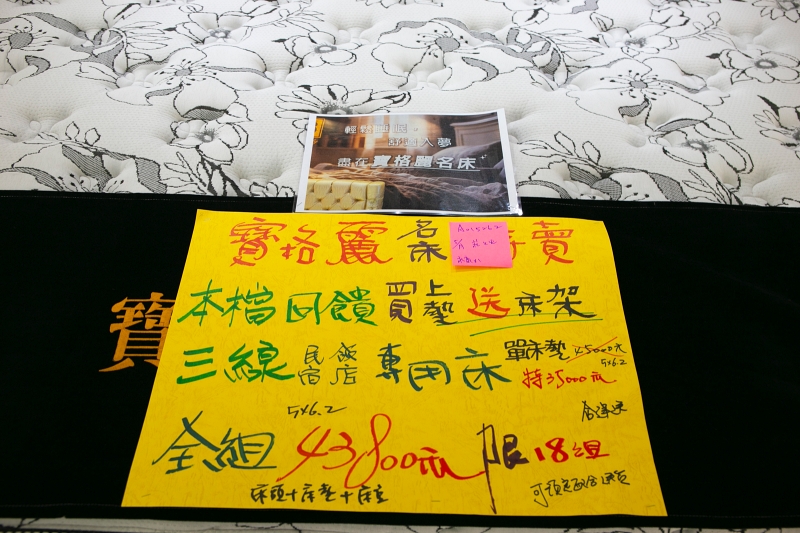 輕鬆睡眠。
舒適入夢
盡在寶格麗名床
寶格麗名床特賣
寶
本檔回饋買上墊送床架
三線民宿飯店專用床單床墊45000元
5x6.2
特35000元
5x6.2
含運送
全組43800元限18組
床頭+床墊+床立
可預定配合送貨